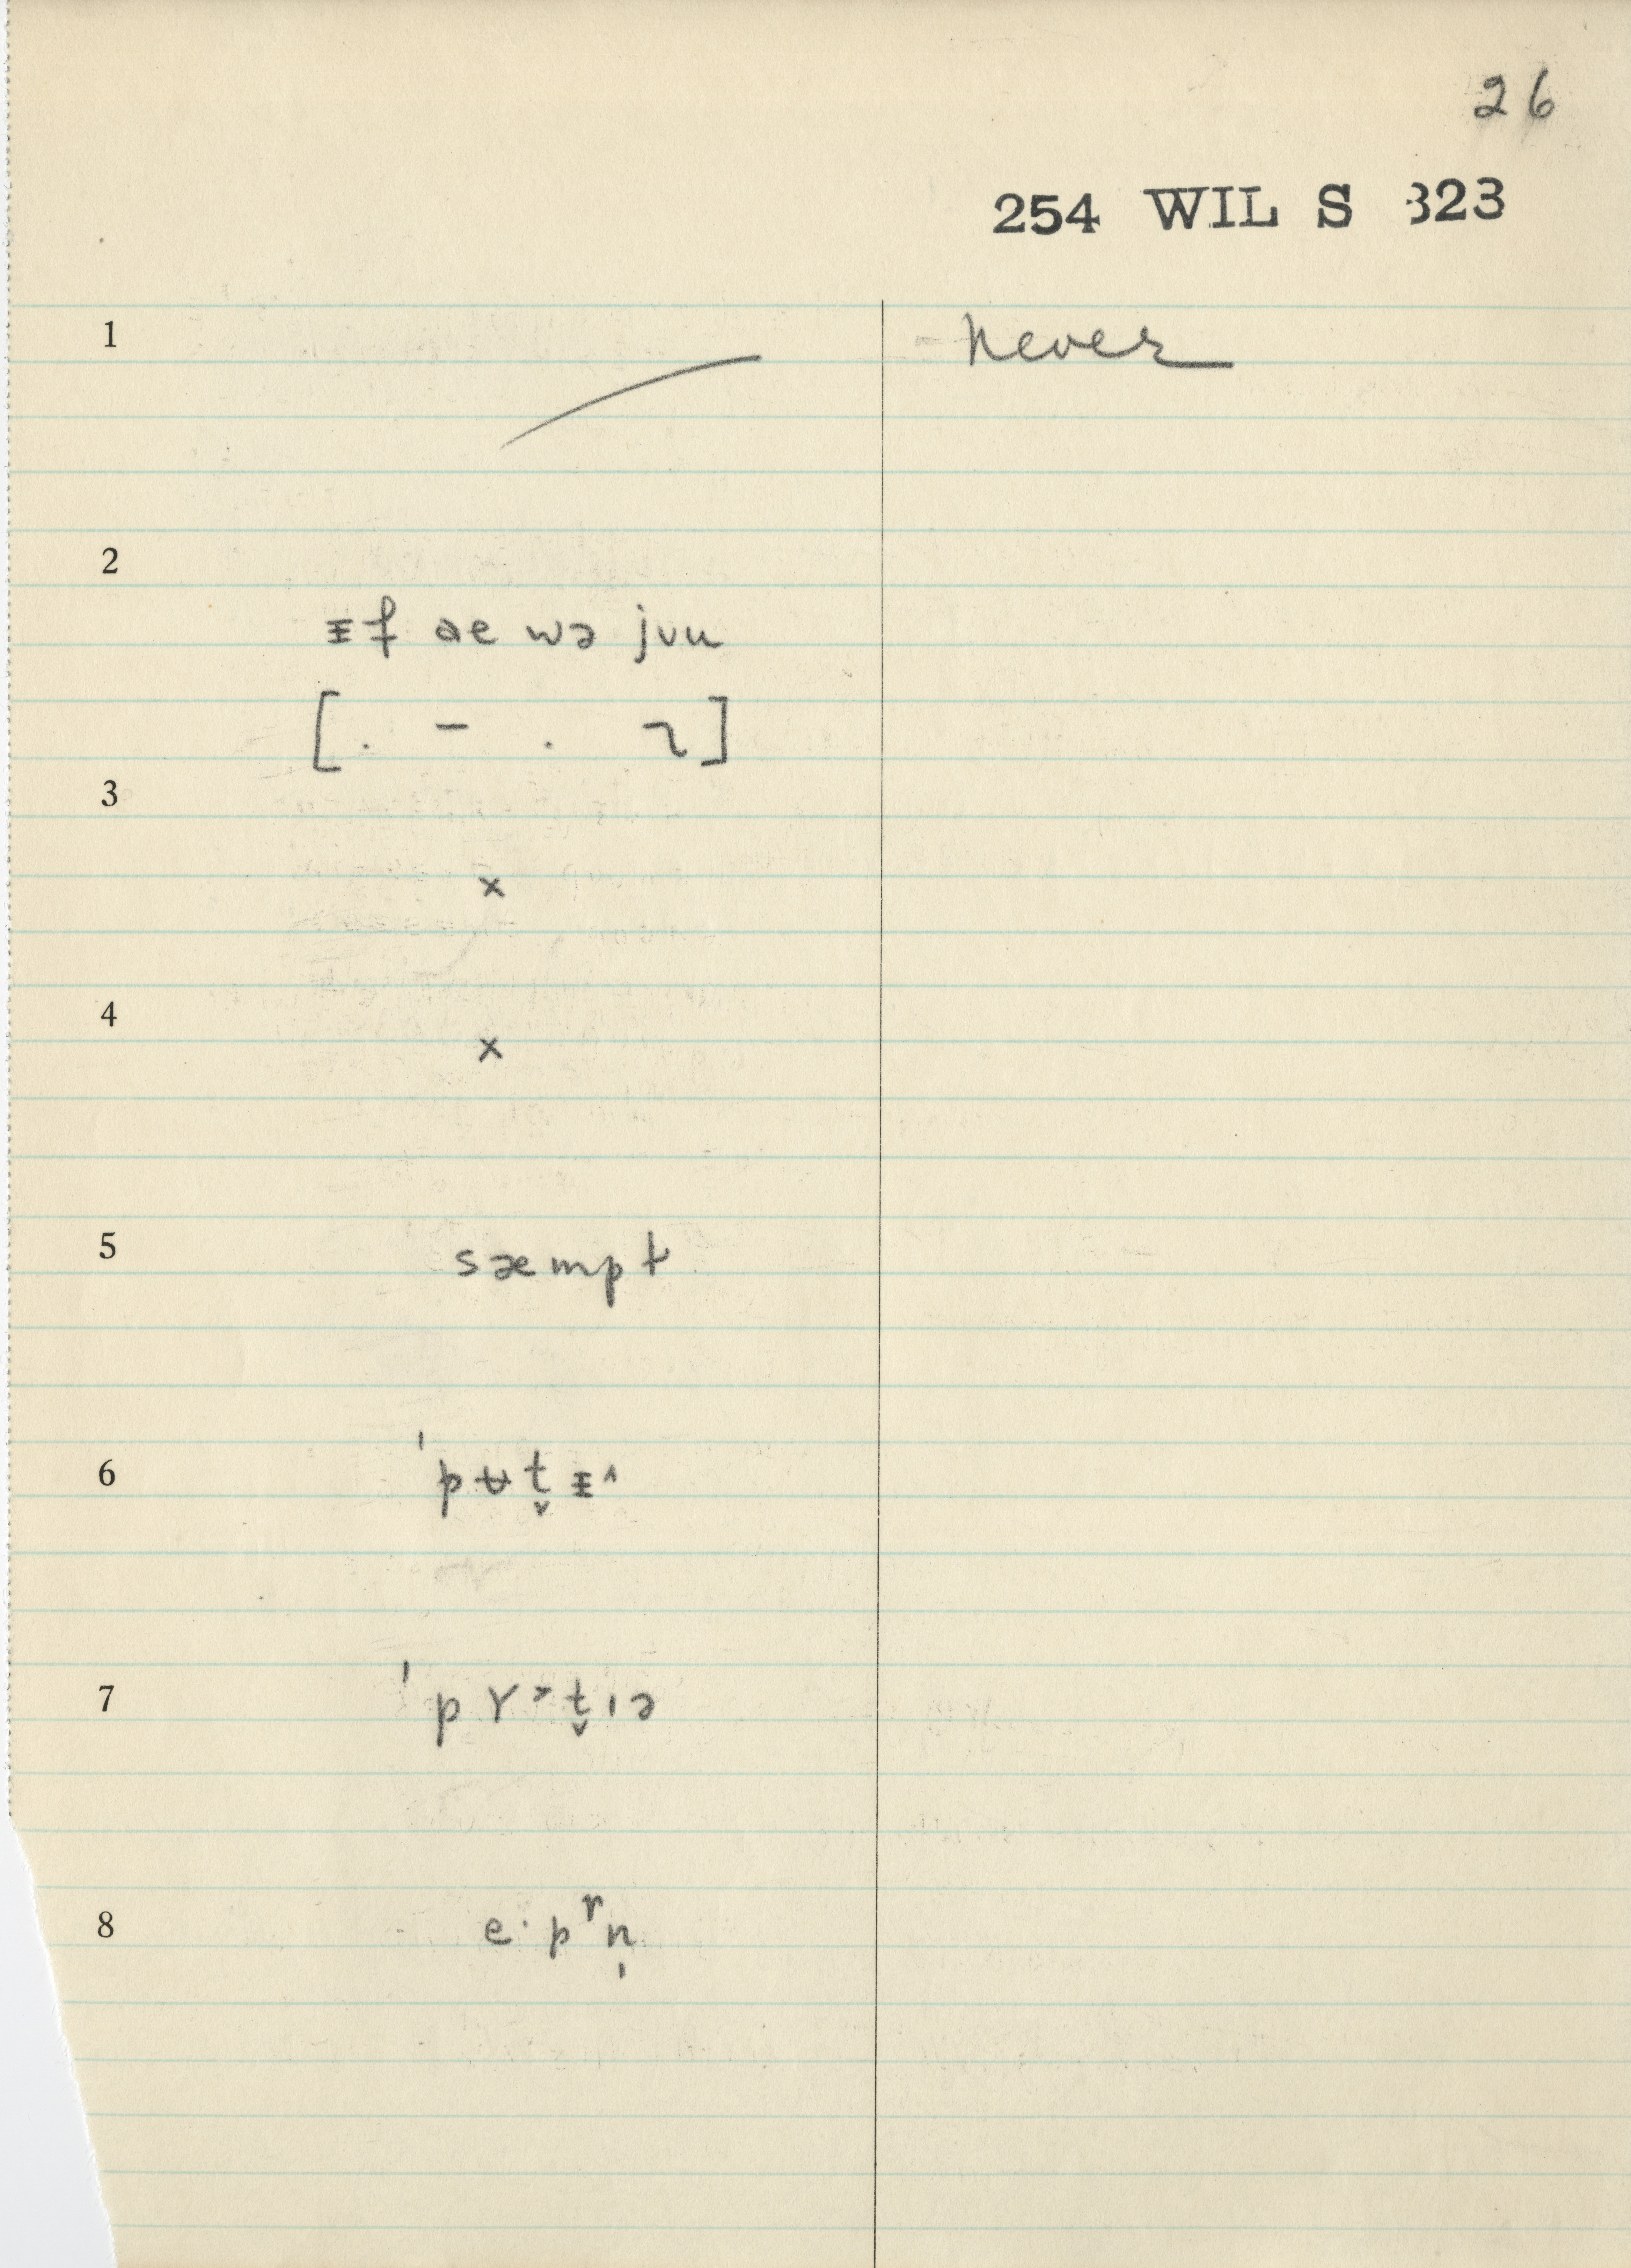 26
254 WIL S 823
1 never
2
ᵻf ae wə jʊu
[. – . ꓶ]
3 ×
4 ×
5 sæmpt
6 ˈpʉt̬ᵻ˄
7 ˈpɤ˃t̬ɪə
8 e·pʳn̩